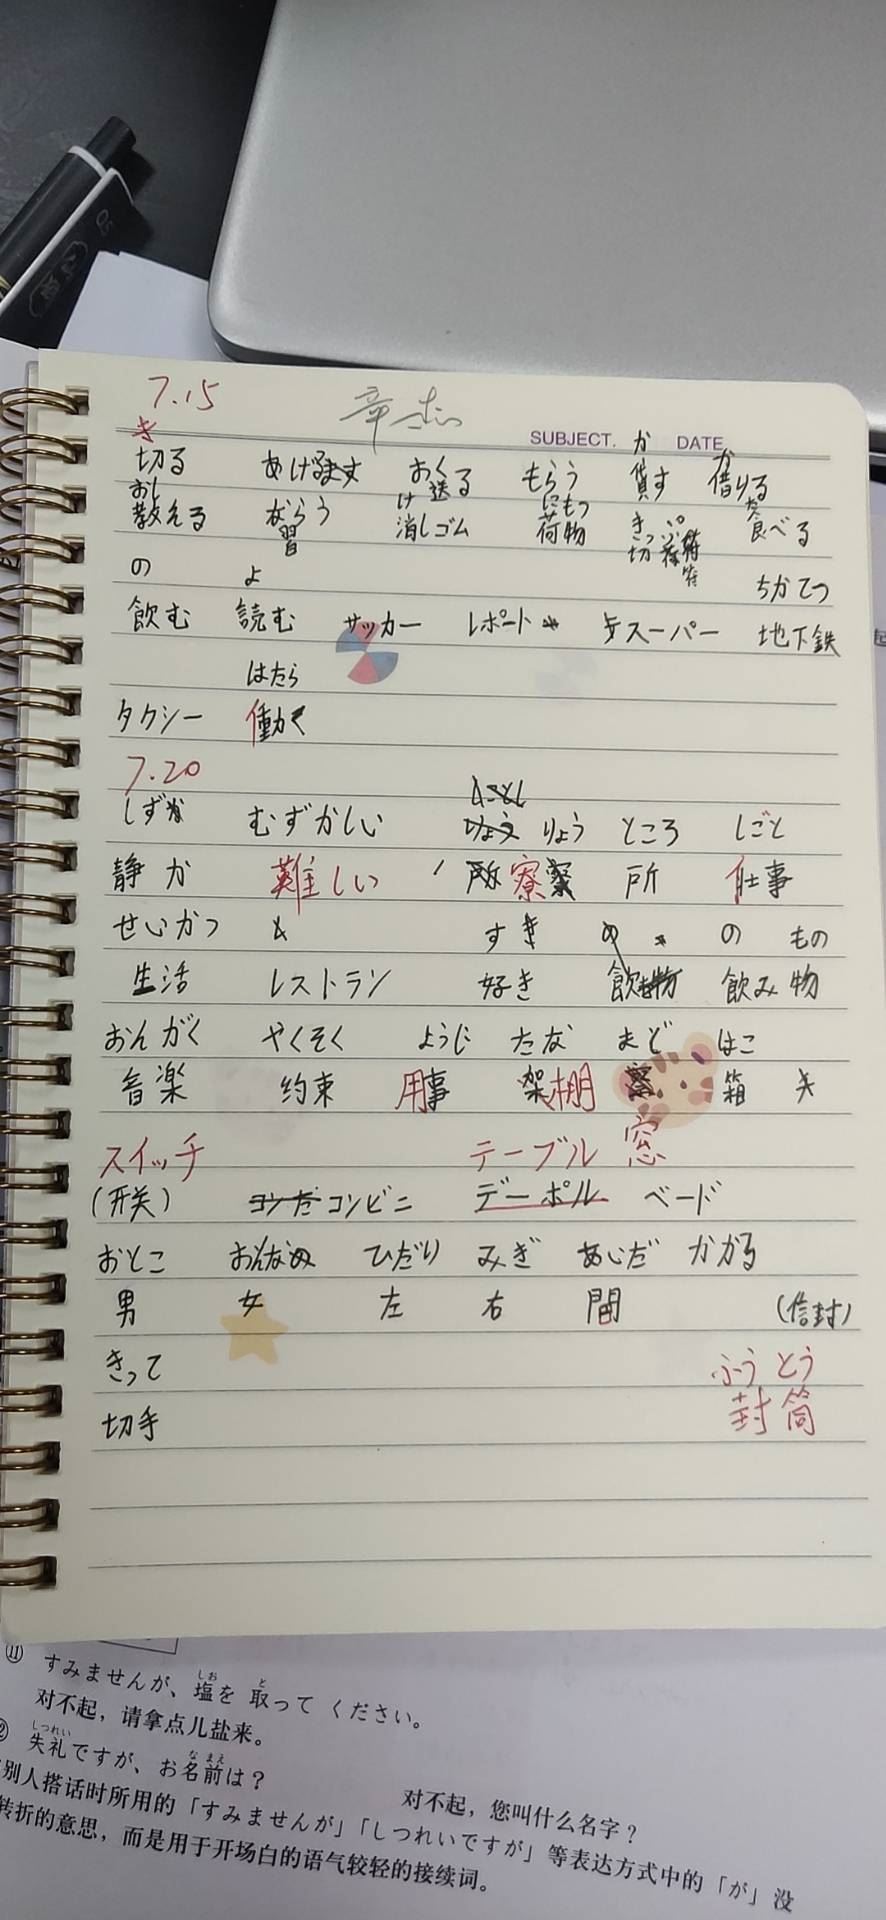 7.15
SUBJECT. か DATE. か
き
切る あげる おく もらう 貸す 借りる
おし 送る
教える ならう け にもつ きっぷ た
習 消しゴム 荷物 切符 食べる
の よ ちかてつ
飲む 読む サッカー レポート スーパー 地下鉄
はたら
タクシー 働く
7.20
しずか むずかしい りょう ところ しごと
静か 難しい 寮 所 仕事
せいかつ すき の の もの
生活 レストラン 好き 飲み物
おんがく やくそく ようじ たな まど はこ
音楽 約束 用事 棚 箱
スイッチ テーブル 窓
(开关) コンビニ デーポル ベード
おとこ おんな ひだり みぎ あいだ かかる
男 女 左 右 間 (信封)
きって ふうとう
切手 封筒
⑪ すみませんが、塩(しお)を 取(と)って ください。
对不起，请拿点儿盐来。
失礼(しつれい)ですが、お名前(なまえ)は？
对不起，您叫什么名字？
别人搭话时所用的「すみませんが」「しつれいですが」等表达方式中的「が」没
转折的意思，而是用于开场白的语气较轻的接续词。